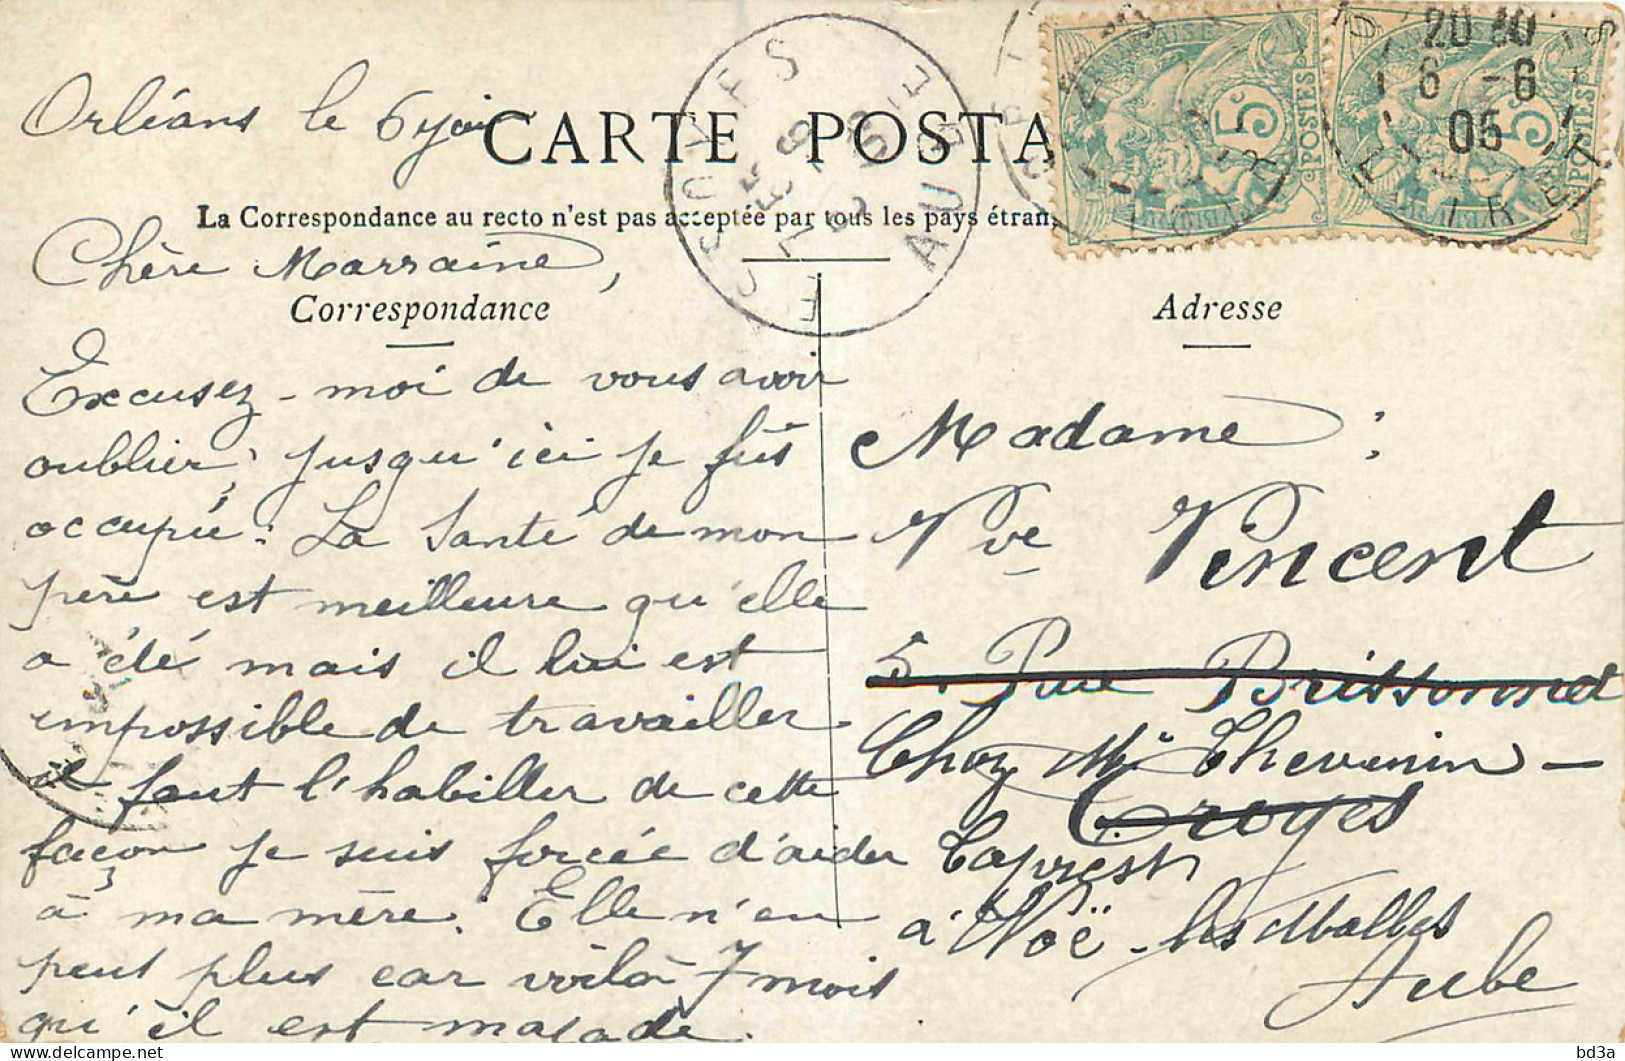 Orléans le 6 juin
CARTE POSTA
La Correspondance au recto n'est pas acceptée par tous les pays étran
Chère Marraine,
Correspondance
Excusez-moi de vous avoir
oublier; jusqu'ici je fûs
occupée: La Santé de mon
père est meilleure qu'elle
a été mais il lui est
impossible de travailler
il faut l'habiller de cette
façon je suis forcée d'aider
à ma mère. Elle n'en
peut plus car voilà 7 mois
qu'il est malade.
Adresse
Madame:
Vve Vincent
5. Rue Brissonnet
Chez Mr Thevenin -
Troyes
à Noë-les Mallets
Aube
ESSOYES
AUBE
5c
POSTES
5c
POSTES
20 40
6 -6
05